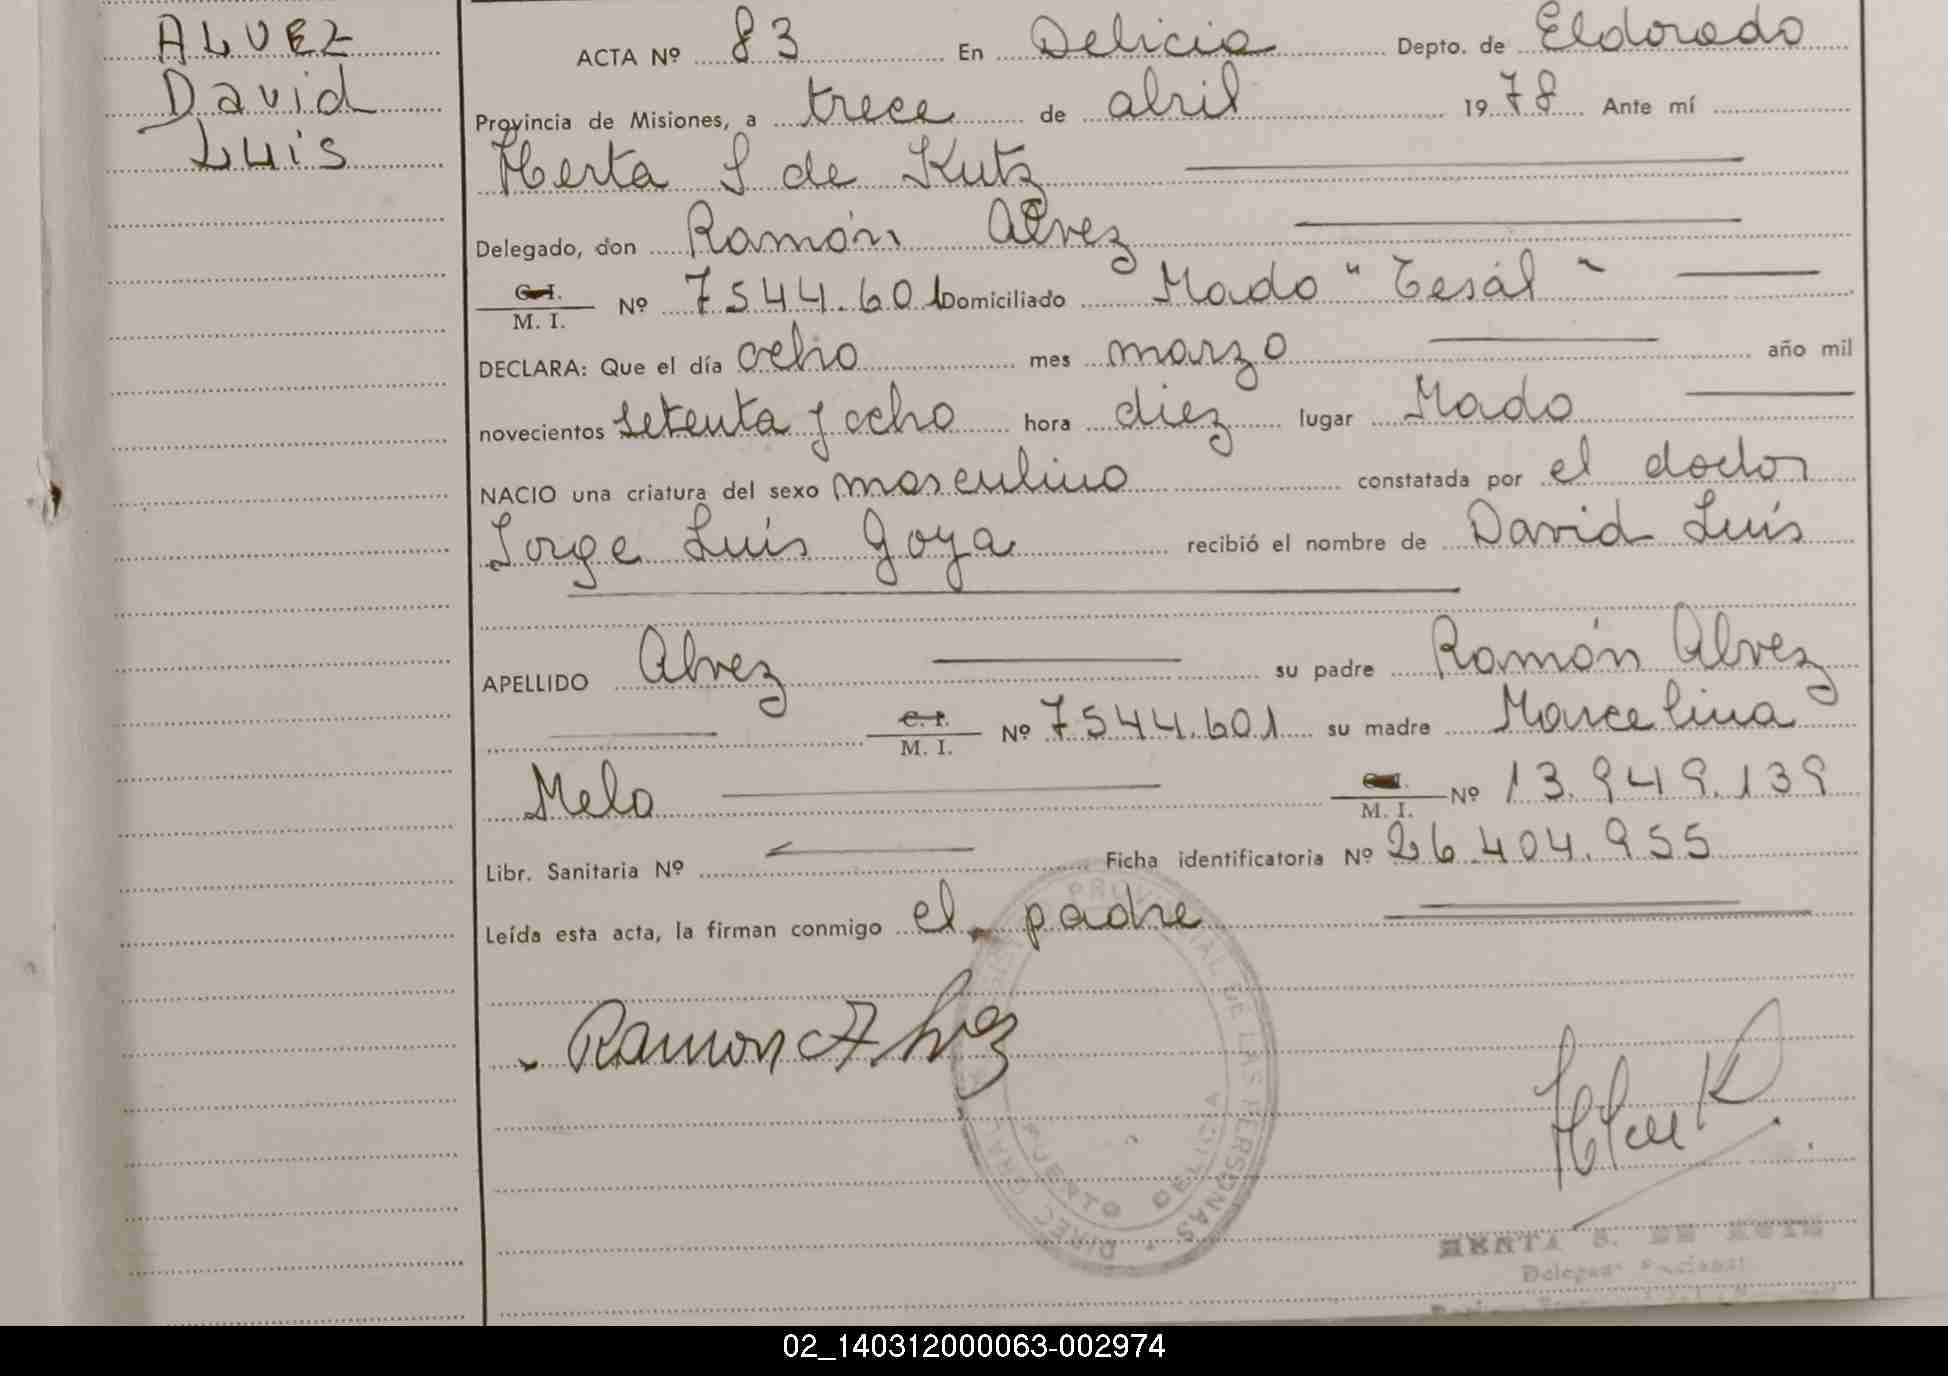 ALVEZ
David
Luis
ACTA Nº 83 En Delicia Depto. de Eldorado
Provincia de Misiones, a trece de abril 1978 Ante mí
Herta S de Kutz
Delegado, don Ramón Alvez
C. I.
M. I. Nº 7544.601 Domiciliado Mado "Tesál"
DECLARA: Que el día ocho mes marzo año mil
novecientos setenta y ocho hora diez lugar Mado
NACIO una criatura del sexo masculino constatada por el doctor
Jorge Luís Goya recibió el nombre de David Luís
APELLIDO Alvez su padre Ramón Alvez
C. I.
M. I. Nº 7544.601 su madre Marcelina
Melo M. I. Nº 13.949.139
Libr. Sanitaria Nº Ficha identificatoria Nº 26.404.955
Leída esta acta, la firman conmigo el padre
Ramon Alvez
DIREC PROVINCIAL DE LAS PERSONAS
DELICIA
HERTA S. DE KUTZ
02_140312000063-002974